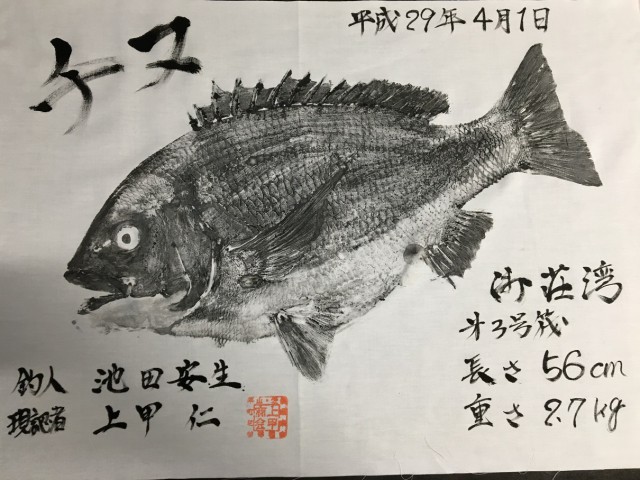 平成29年4月1日
チヌ
御荘湾
才3号筏
長さ 56cm
重さ 2.7kg
釣人 池田安生
現認者 上甲 仁